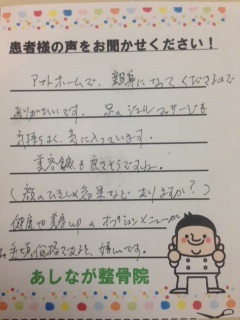 患者様の声をお聞かせください!
アットホームで、親身になってくださるので
ありがたいです。足のジェルマッサージも
気持ちよく、気に入っています。
美容鍼も良さそうですね。
(顔のひきしめ効果など ありますか?)
健康や美容upのオプションメニューが
お手頃価格であると、嬉しいです。
あしなが整骨院